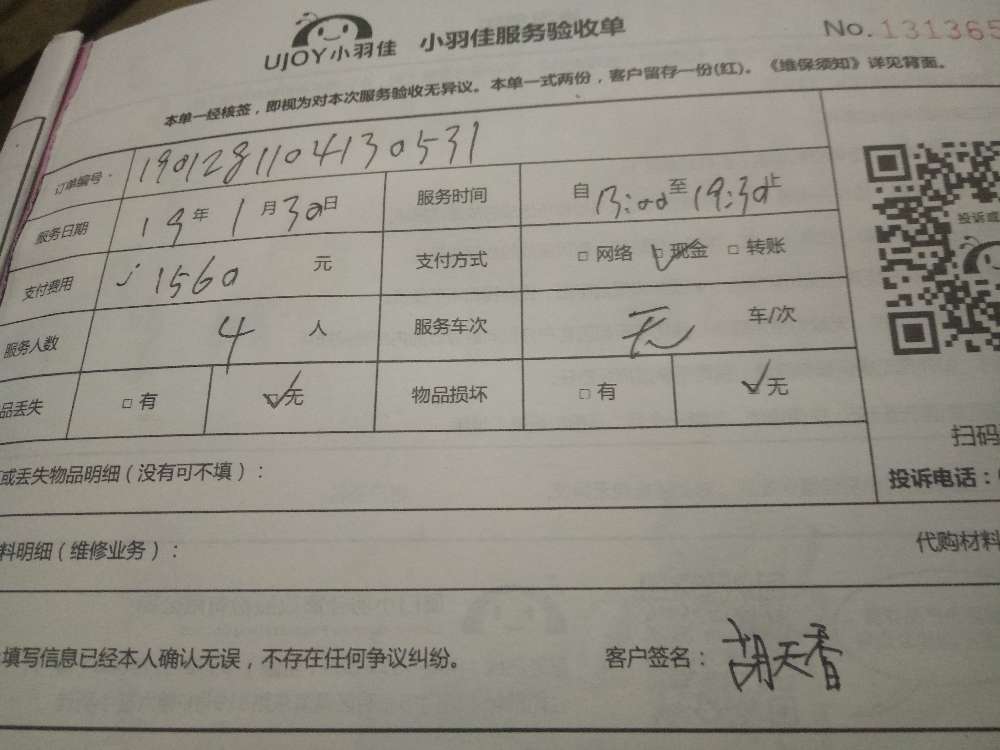 UJOY小羽佳 小羽佳服务验收单 No.131365
本单一经核签，即视为对本次服务验收无异议。本单一式两份，客户留存一份(红)。《维保须知》详见背面。
订单编号 1901281104130531
服务日期 19年1月30日 服务时间 自13:00至19:30止
支付费用 1560元 支付方式 □网络 ☑现金 □转账
投诉或
服务人数 4人 服务车次 无 车/次
品丢失 □有 ☑无 物品损坏 □有 ☑无
扫码
或丢失物品明细（没有可不填）：
投诉电话：
料明细（维修业务）： 代购材料
填写信息已经本人确认无误，不存在任何争议纠纷。 客户签名：胡天香